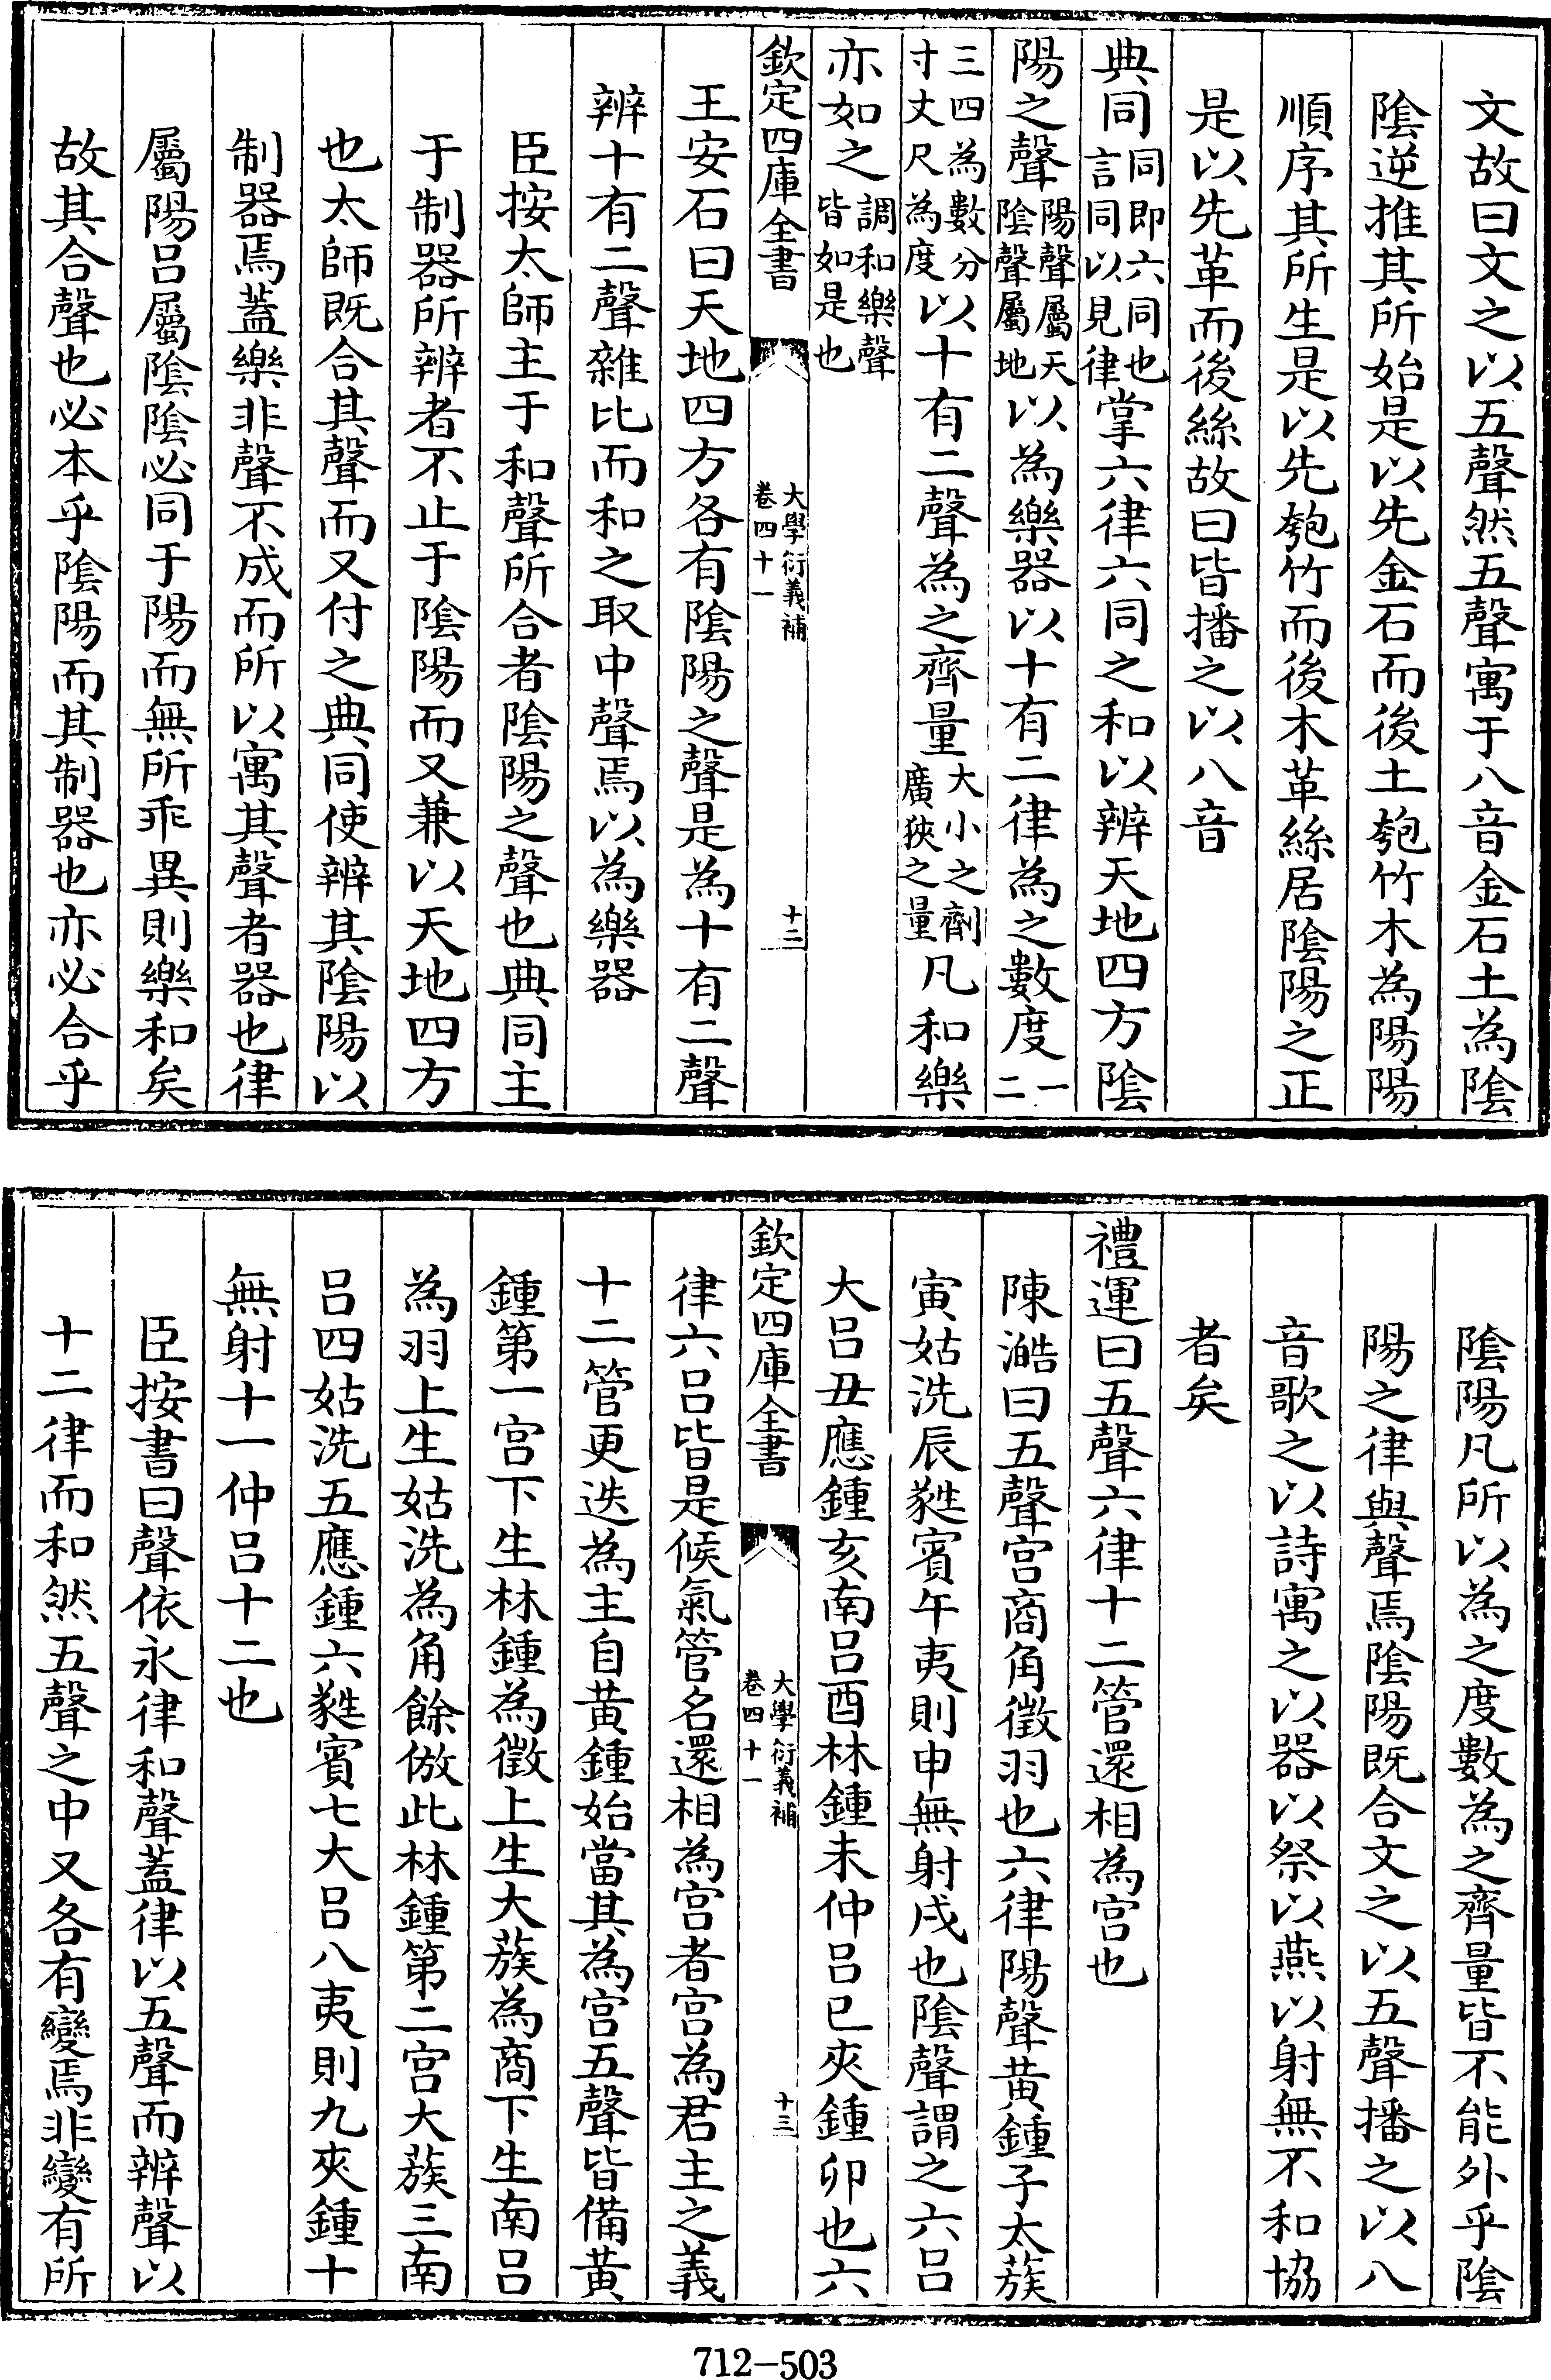 文故曰文之以五聲然五聲寓于八音金石土為陰
陰逆推其所始是以先金石而後土匏竹木為陽陽
順序其所生是以先匏竹而後木革絲居陰陽之正
是以先革而後絲故曰皆播之以八音
典同同即六同也言同以見律掌六律六同之和以辨天地四方陰
陽之聲陽聲屬天陰聲屬地以為樂器以十有二律為之數度一二
三四為數分寸丈尺為度以十有二聲為之齊量大小之劑廣狹之量凡和樂
亦如之調和樂聲皆如是也
欽定四庫全書 大學衍義補 卷四十一 十二
王安石曰天地四方各有陰陽之聲是為十有二聲
辨十有二聲雜比而和之取中聲焉以為樂器
臣按太師主于和聲所合者陰陽之聲也典同主
于制器所辨者不止于陰陽而又兼以天地四方
也太師既合其聲而又付之典同使辨其陰陽以
制器焉蓋樂非聲不成而所以寓其聲者器也律
屬陽呂屬陰陰必同于陽而無所乖異則樂和矣
故其合聲也必本乎陰陽而其制器也亦必合乎
陰陽凡所以為之度數為之齊量皆不能外乎陰
陽之律與聲焉陰陽既合文之以五聲播之以八
音歌之以詩寓之以器以祭以燕以射無不和協
者矣
禮運曰五聲六律十二管還相為宮也
陳澔曰五聲宮商角徵羽也六律陽聲黃鍾子太蔟
寅姑洗辰蕤賓午夷則申無射戌也陰聲謂之六呂
大呂丑應鍾亥南呂酉林鍾未仲呂巳夾鍾卯也六
欽定四庫全書 大學衍義補 卷四十一 十三
律六呂皆是候氣管名還相為宮者宮為君主之義
十二管更迭為主自黃鍾始當其為宮五聲皆備黃
鍾第一宮下生林鍾為徵上生大蔟為商下生南呂
為羽上生姑洗為角餘倣此林鍾第二宮大蔟三南
呂四姑洗五應鍾六蕤賓七大呂八夷則九夾鍾十
無射十一仲呂十二也
臣按書曰聲依永律和聲蓋律以五聲而辨聲以
十二律而和然五聲之中又各有變焉非變有所
712-503